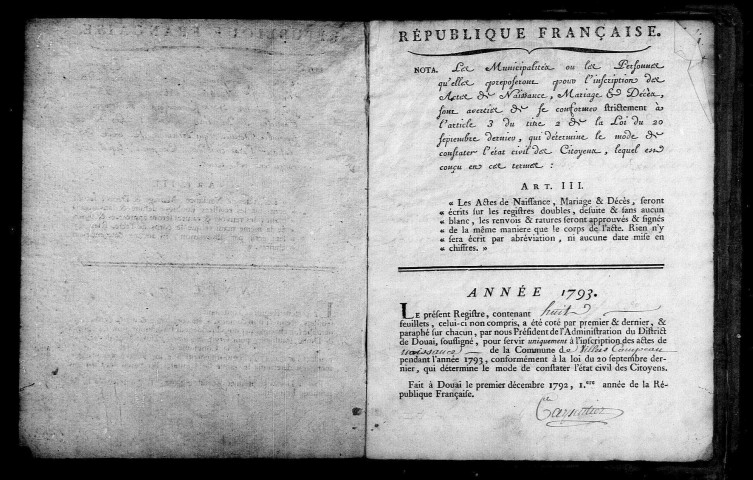 RÉPUBLIQUE FRANÇAISE.
NOTA. Les Municipalités ou les Personnes
qu'elles préposeront pour l'inscription des
Actes de Naissance, Mariage & Décès,
sont averties de se conformer strictement à
l'article 3 du titre 2 de la Loi du 20
septembre dernier, qui détermine le mode de
constater l'état civil des Citoyens, lequel est
conçu en ces termes :
ART. III.
« Les Actes de Naissance, Mariage & Décès, seront
« écrits sur les registres doubles, desuite & sans aucun
« blanc, les renvois & ratures seront approuvés & signés
« de la même maniere que le corps de l'acte. Rien n'y
« sera écrit par abréviation, ni aucune date mise en
« chiffres. »
ANNÉE 1793.
LE présent Registre, contenant huit
feuillets, celui-ci non compris, a été coté par premier & dernier, &
paraphé sur chacun, par nous Président de l'Administration du District
de Douai, soussigné, pour servir uniquement à l'inscription des actes de
naissance de la Commune de Villers Campeau
pendant l'année 1793, conformément à la loi du 20 septembre der-
nier, qui détermine le mode de constater l'état civil des Citoyens.
Fait à Douai le premier décembre 1792, 1.ere année de la Ré-
publique Française.